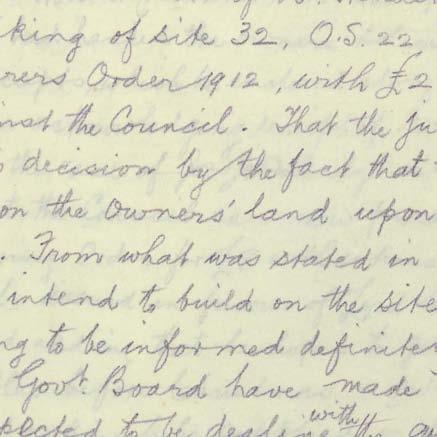 king of site 32, O.S. 22
rers Order 1912, with £2
inst the Council. That the ju
decision by the fact that
on the Owners' land upon
. From what was stated in
intend to build on the site
ng to be informed definite
Govt. Board have made
pected to be with